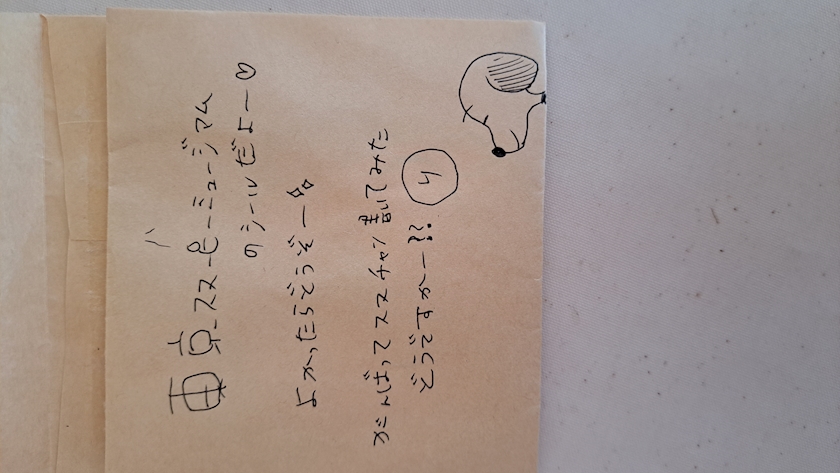 東京スヌーピーミュージアム
のシールだよー♡
よかったらどうぞー
がんばってスヌチャン書いてみた
どうですかー??